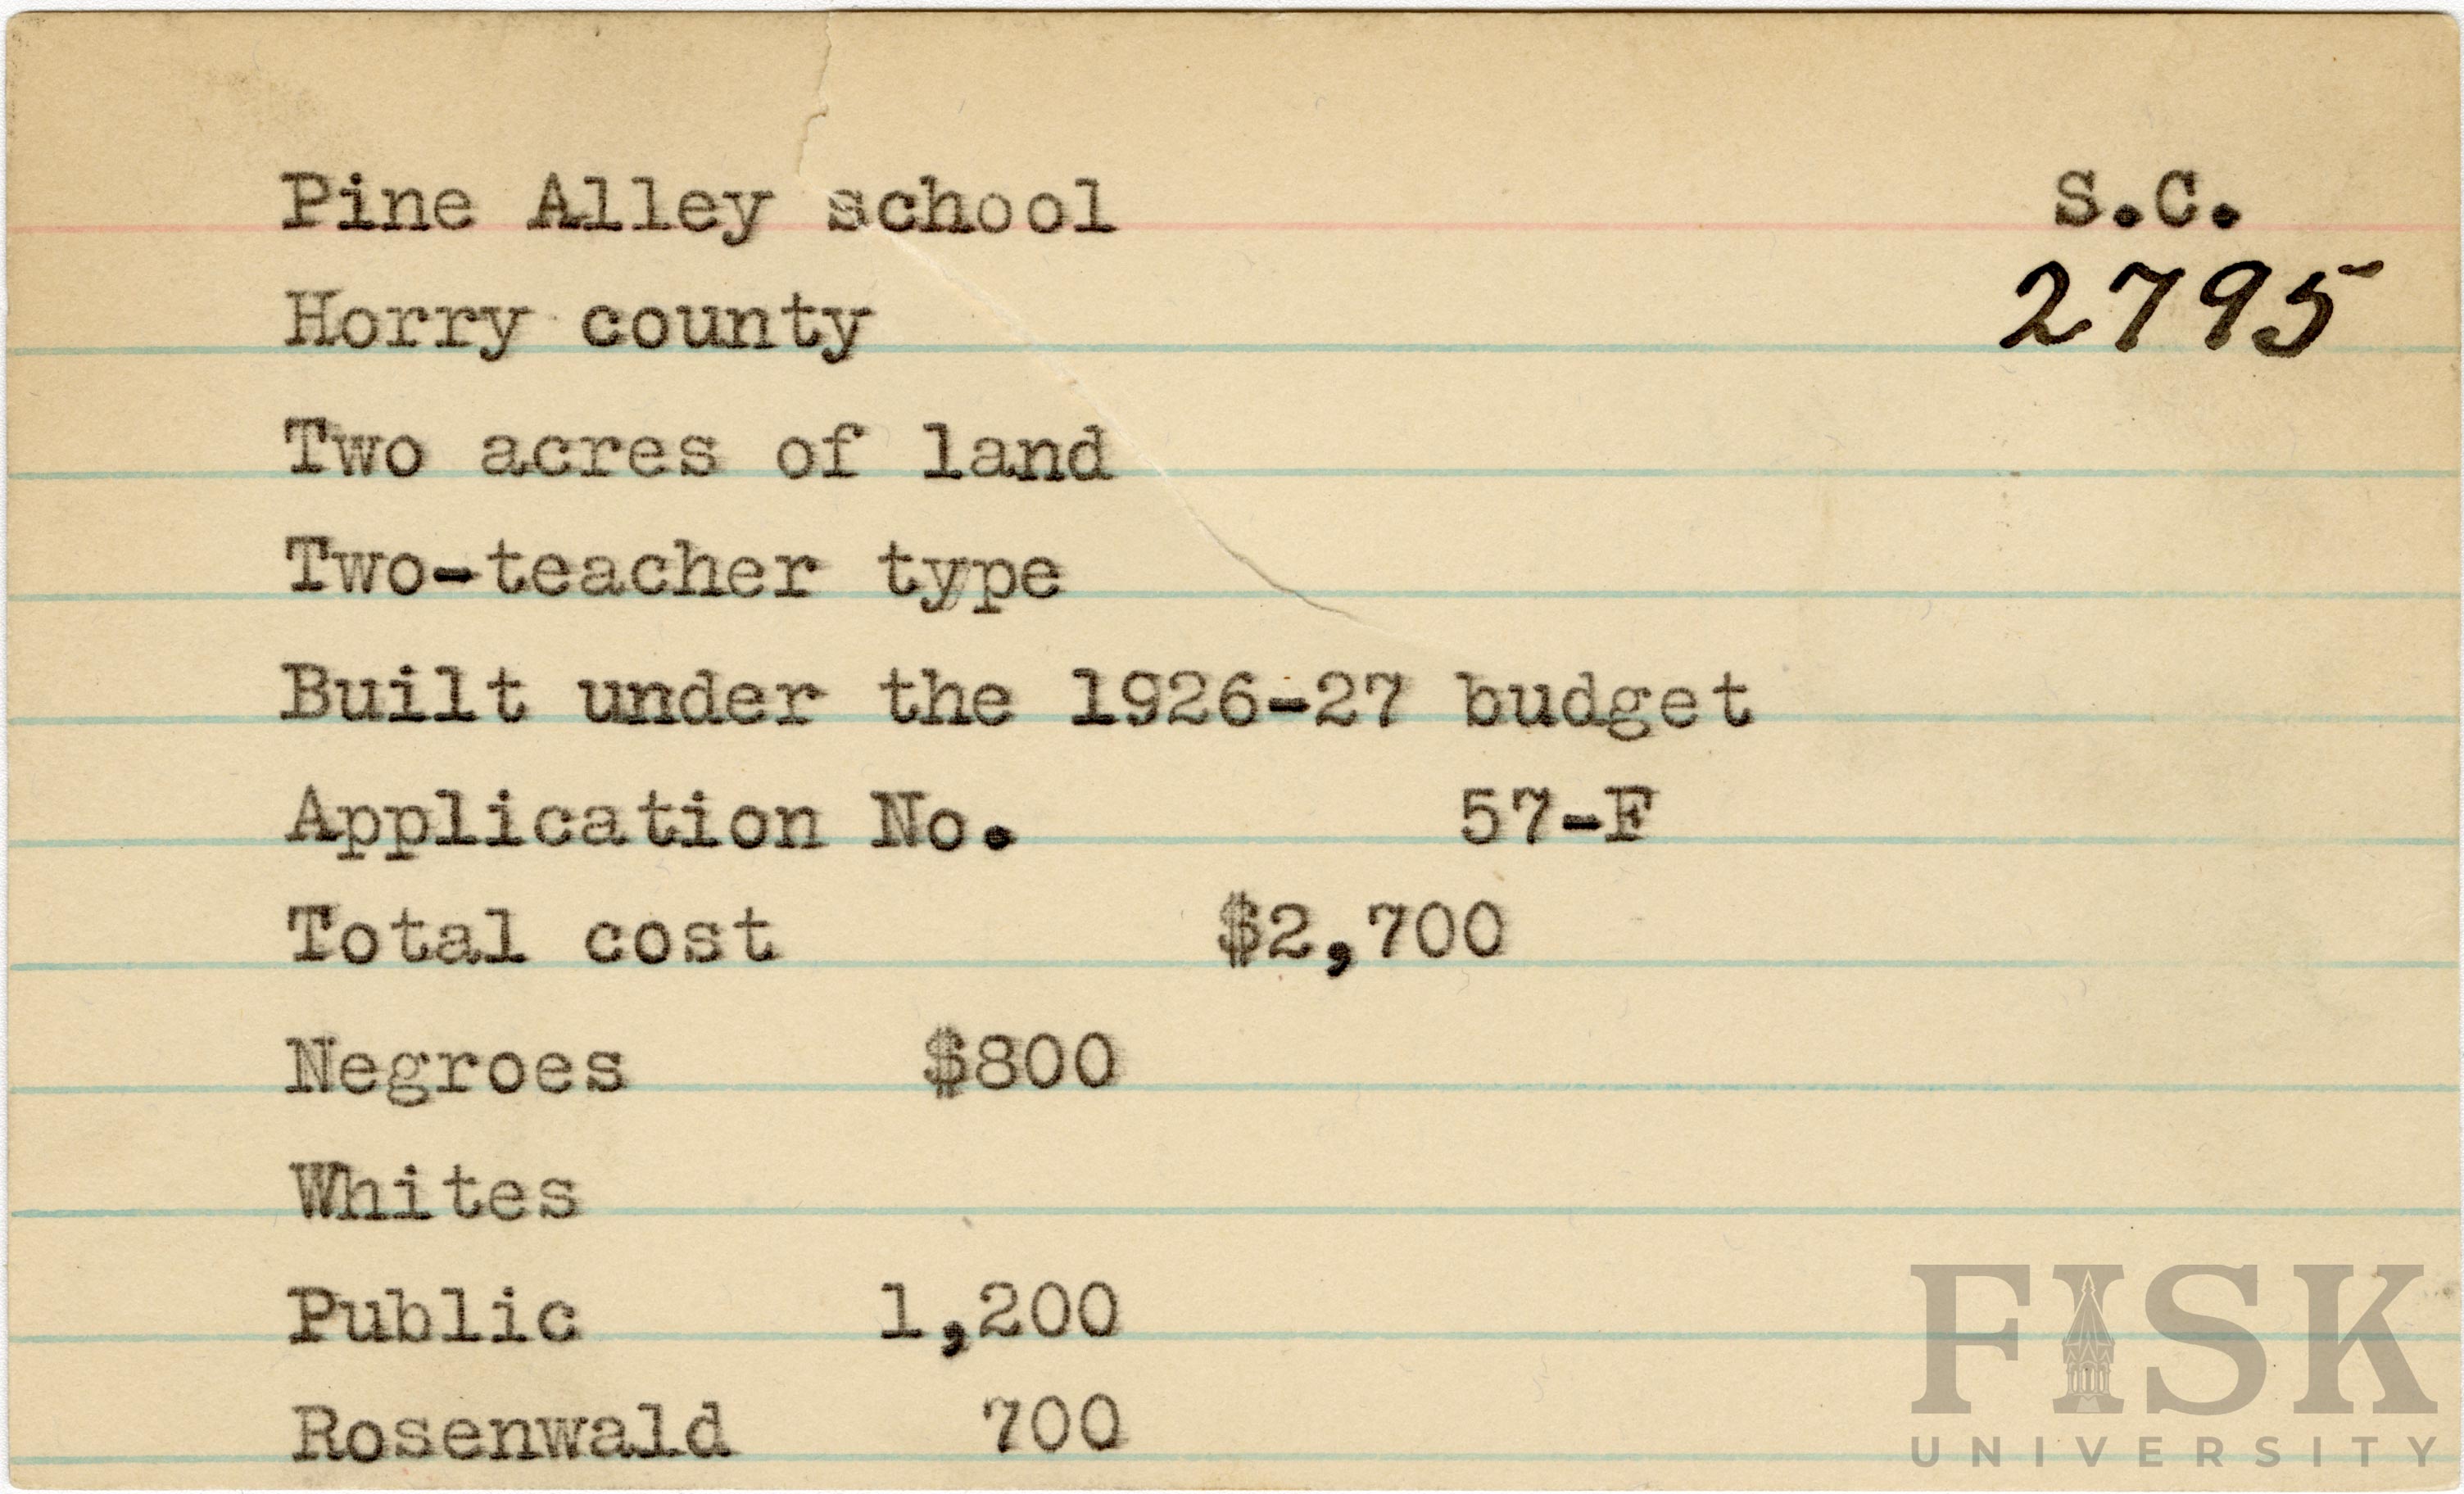 Pine Alley school S.C.
2795
Horry county
Two acres of land
Two-teacher type
Built under the 1926-27 budget
Application No. 57-F
Total cost $2,700
Negroes $800
Whites
Public 1,200
Rosenwald 700
FISK
UNIVERSITY